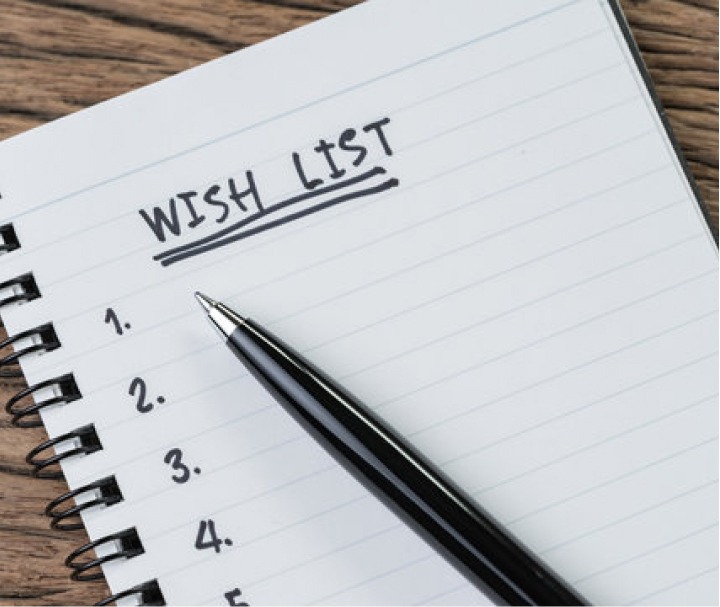 WISH LIST
1.
2.
3.
4.
5